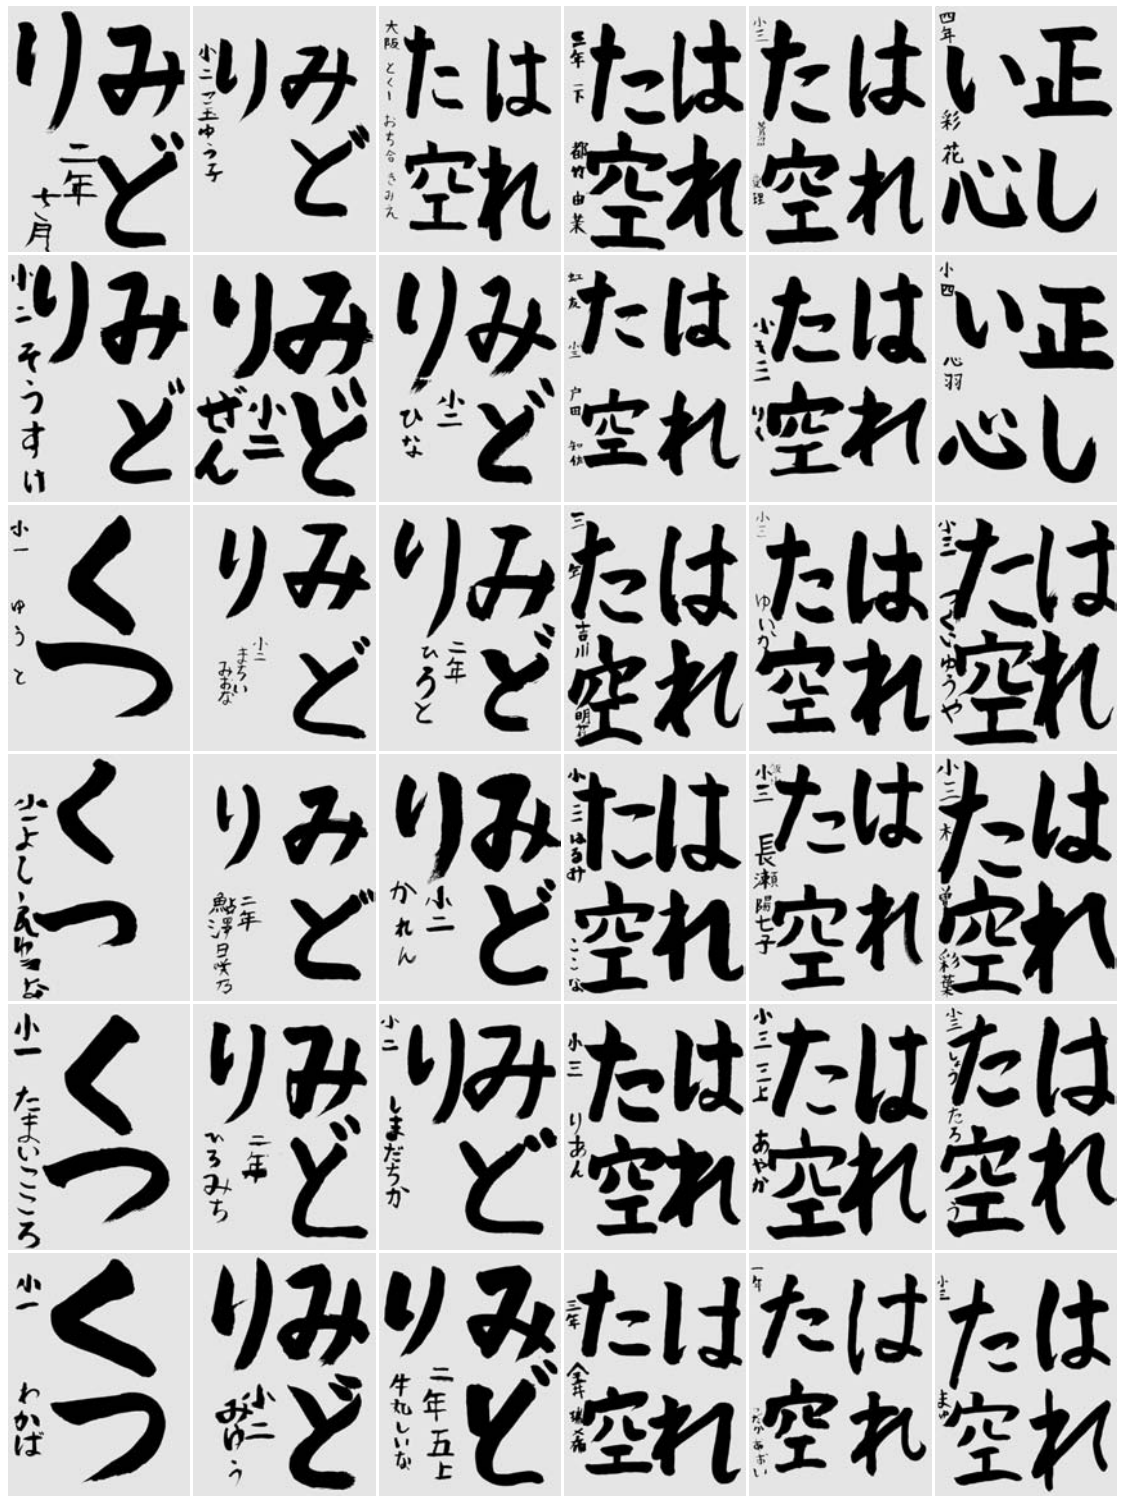 みど
り
二年
みど
り
小二
はれ
た空
大阪 とくー おち合 きみえ
はれ
た空
三年 二下 都竹 由菜
はれ
た空
小三
正し
い心
四年 彩花
みど
り
小二 そうすけ
みど
り
小二
ぜん
みど
り
小二
ひな
はれ
た空
虹友 小三 戸田 知佐
はれ
た空
りく
正し
い心
小四 心羽
くつ
小一 ゆうと
みど
り
小二
まちい
みおな
みど
り
二年
ひろと
はれ
た空
三年 吉川 明花
はれ
た空
小三 ゆいか
はれ
た空
小三 つくいゆうや
くつ
小一
みど
り
二年
鮎澤日咲乃
みど
り
小二
かれん
はれ
た空
小三 はるみ ここな
はれ
た空
小三 長瀬 陽七子
はれ
た空
小三 木曽 彩葉
くつ
小一 たまいこころ
みど
り
二年
ひろみち
みど
り
小二 しまだちか
はれ
た空
小三 りあん
はれ
た空
小三 三上 あやか
はれ
た空
小三 しょうたろう
くつ
小一 わかば
みど
り
小二
みゆう
みど
り
二年 五上
牛丸しいな
はれ
た空
三年 金井 瑞希
はれ
た空
はれ
た空
小三 まゆ